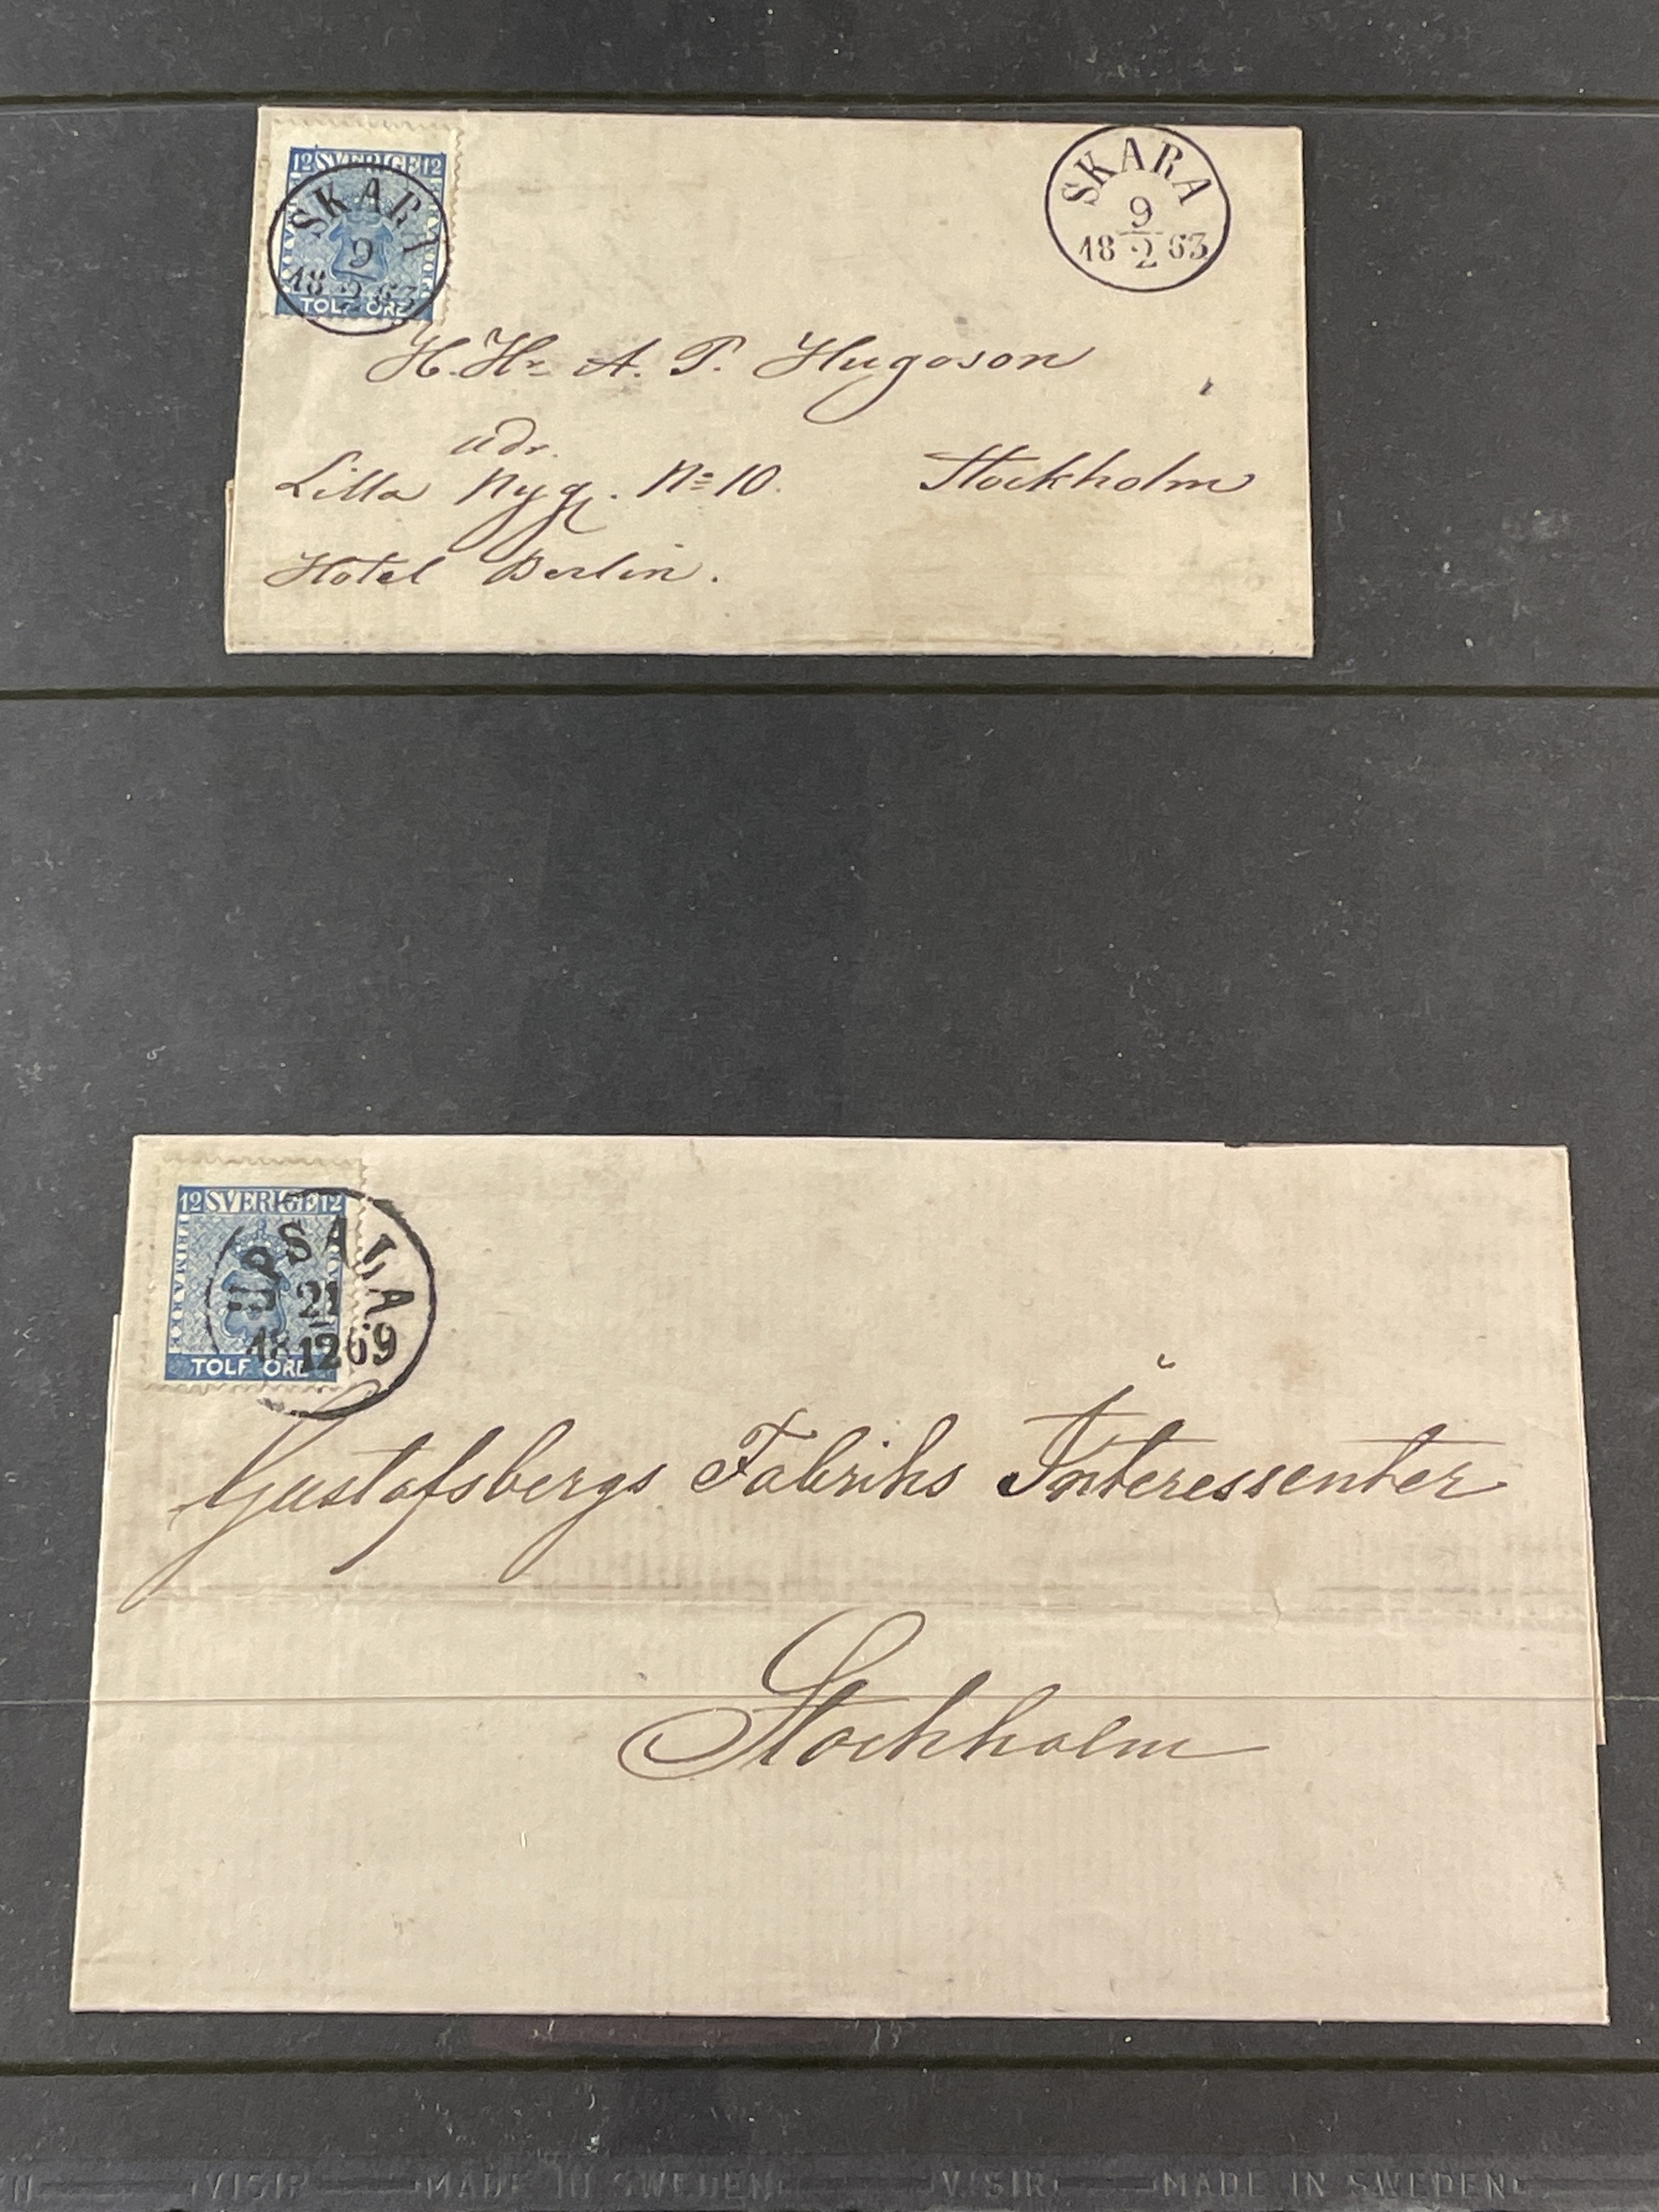 12 SVERIGE 12
TOLF ÖRE
SKARA
9
18 2 63
SKARA
9
18 2 63
H. Hr A. P. Hugoson
adr.
Lilla Nyg. No 10. Stockholm
Hotel Berlin.
12 SVERIGE 12
FRIMÄRKE
TOLF ÖRE
UPSALA
21
18 12 69
Gustafsbergs Fabriks Interessenter
Stockholm
VISIR MADE IN SWEDEN VISIR MADE IN SWEDEN